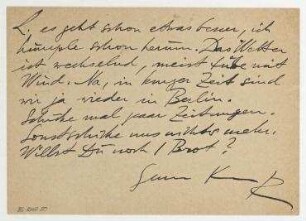 L, es geht schon etwas besser, ich
humple schon herum. Das Wetter
ist wechselnd, meist trübe mit
Wind. Na, in kurzer Zeit sind
wir ja wieder in Berlin.
Schicke mal paar Zeitungen.
Sonst schicke uns nichts mehr.
Willst Du noch 1 Brot?